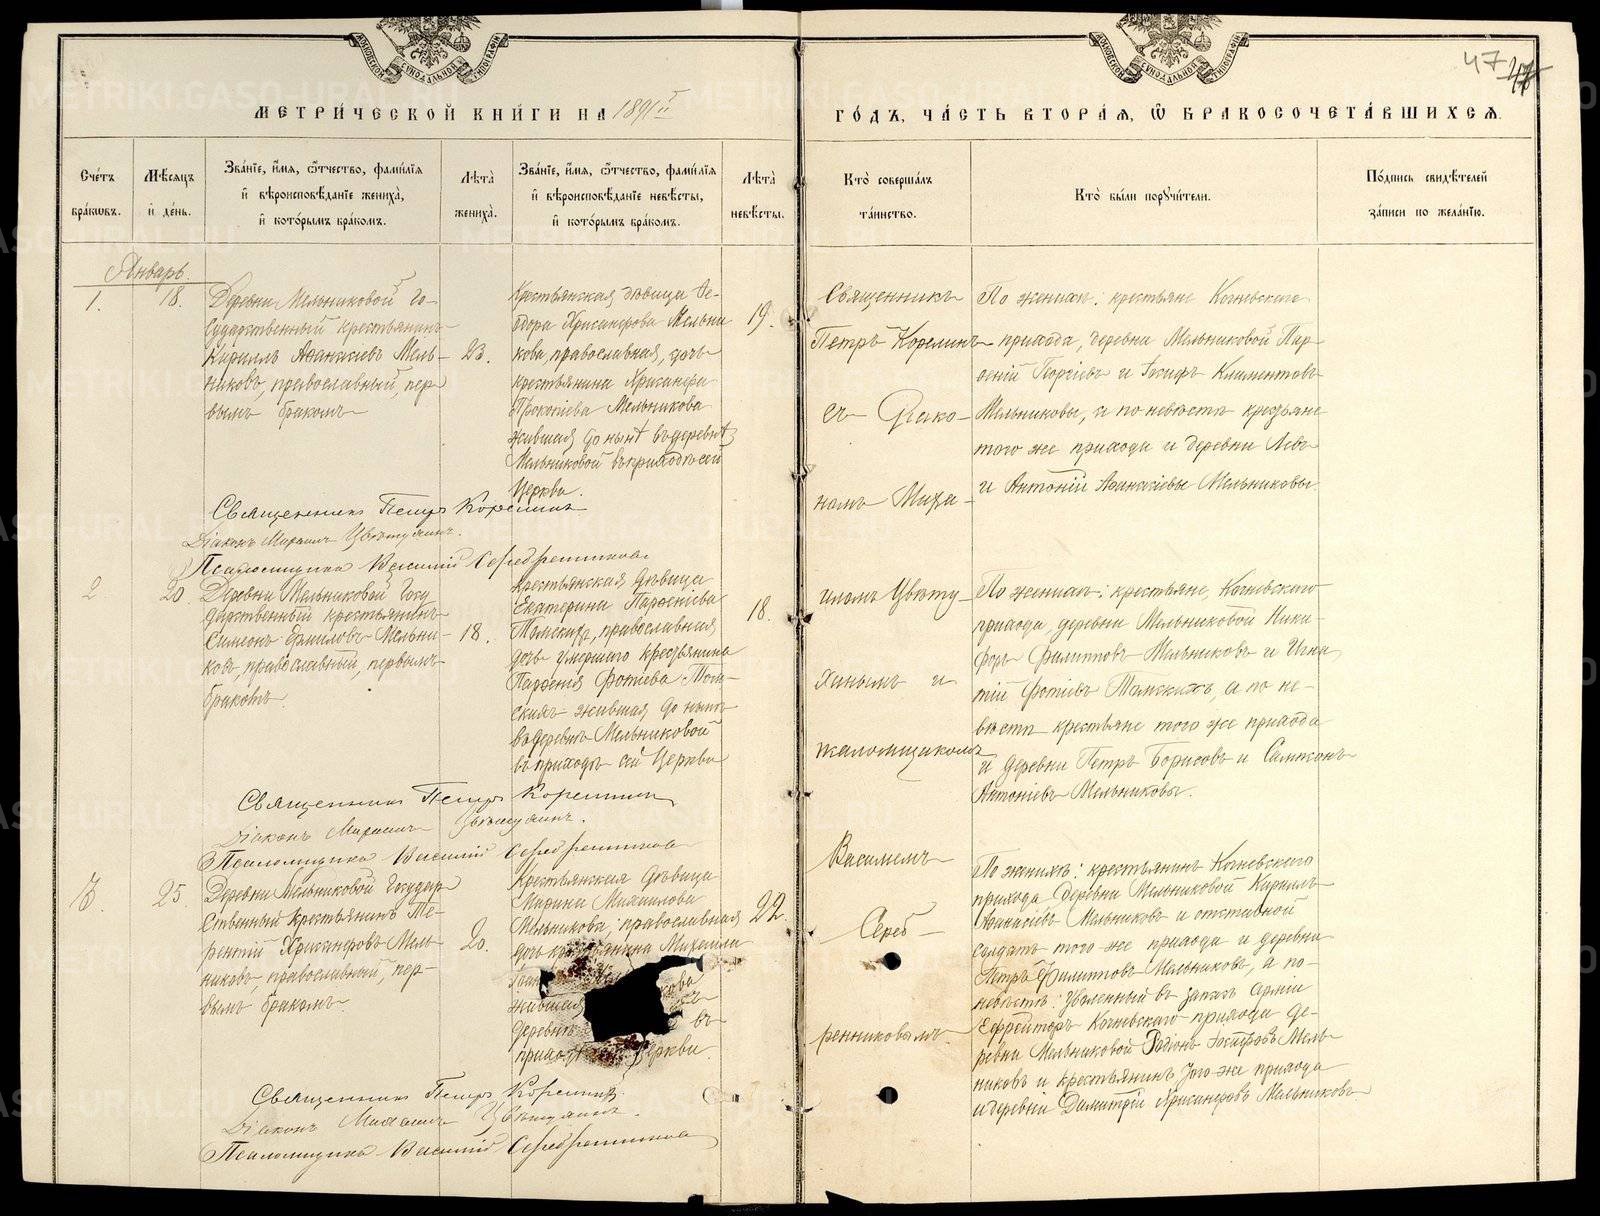 МЕТРИ́ЧЕСКОЙ КНИ́ГИ НА 1891
ГО́ДЪ, ЧА́СТЬ ВТОРА́Я, Ѿ БРАКОСОЧЕТА́ВШИХСЯ.
47
Сче́тъ
бра́кѡвъ.
Мѣ́сяцъ
и҆ де́нь.
Зва́нїе, и҆́мя, ѻ҆́тчество, фами́лїя
и҆ вѣроисповѣ́данїе жениха̀,
и҆ кото́рымъ бра́комъ.
Лѣ́та
жениха̀.
Зва́нїе, и҆́мя, ѻ҆́тчество, фами́лїя
и҆ вѣроисповѣ́данїе невѣ́сты,
и҆ кото́рымъ бра́комъ.
Лѣ́та
невѣ́сты.
Кто̀ соверша́лъ
та́инство.
Кто̀ бы́ли порꙋчи́тели.
По́дпись свидѣ́телей
за́писи по жела́нїю.
Январь.
1.
18.
Деревни Мельниковой Го-
сударственный крестьянинъ
Кириллъ Аѳанасіевъ Мель-
никовъ, православный, пер-
вымъ бракомъ
23.
Крестьянская дѣвица Ѳе-
одора Хрисанфова Мельни
кова, православная, дочь
крестьянина Хрисанфа
Прокопіева Мельникова
жившая до нынѣ въ деревнѣ
Мельниковой въ приходѣ сей
Церкви.
19.
Священникъ
Петръ Корелинъ
съ Діако-
номъ Миха-
иломъ Цвѣту-
хинымъ и
псаломщикомъ
Василіемъ
Сереб-
ренниковымъ.
По женихѣ: крестьяне Кочневскаго
прихода, деревни Мельниковой Пар-
ѳеній Георгіевъ и Іосифъ Климентовъ
Мельниковы, и по невѣстѣ крестьяне
того же прихода и деревни Левъ
и Антоній Аѳанасіевы Мельниковы
Священникъ Петръ Корелинъ
Діаконъ Михаилъ Цвѣтухинъ.
Псаломщикъ Василій Серебренниковъ
2
20.
Деревни Мельниковой Госу
дарственный крестьянинъ
Симеонъ Ермиловъ Мельни-
ковъ, православный, первымъ
бракомъ.
18.
Крестьянская дѣвица
Екатерина Парѳеніева
Томскихъ, православная
дочь умершаго крестьянина
Парѳенія Фотіева Том-
скихъ жившая до нынѣ
въ деревнѣ Мельниковой
въ приходѣ сей Церкви
18.
По женихѣ: крестьяне, Кочневскаго
прихода, деревни Мельниковой Ники-
форъ Филипповъ Мельниковъ и Игна
тій Фотіевъ Томскихъ, а по не-
вѣстѣ крестьяне того же прихода
и деревни Петръ Борисовъ и Сампсонъ
Антоніевъ Мельниковы.
Священникъ Петръ Корелинъ
Діаконъ Михаилъ Цвѣтухинъ.
Псаломщикъ Василій Серебренниковъ
3.
25.
Деревни Мельниковой Государ
ственный крестьянинъ Те-
рентій Хрисанфовъ Мель-
никовъ, православный, пер-
вымъ бракомъ.
20.
Крестьянская дѣвица
Марина Михаилова
Мельникова, православная
дочь крестьянина Михаила
кова
жившая
деревнѣ въ
приходѣ Церкви.
22.
По женихѣ: крестьянинъ Кочневскаго
прихода деревни Мельниковой Кириллъ
Аѳанасіевъ Мельниковъ и отставной
солдатъ того же прихода и деревни
Петръ Филипповъ Мельниковъ, а по-
невѣстѣ: уволенный въ запасъ арміи
Ефрейторъ Кочневскаго прихода де-
ревни Мельниковой Родіонъ Іосифовъ Мель-
никовъ и крестьянинъ того же прихода
и деревни Димитрій Хрисанфовъ Мельниковъ
Священникъ Петръ Корелинъ
Діаконъ Михаилъ Цвѣтухинъ.
Псаломщикъ Василій Серебренниковъ